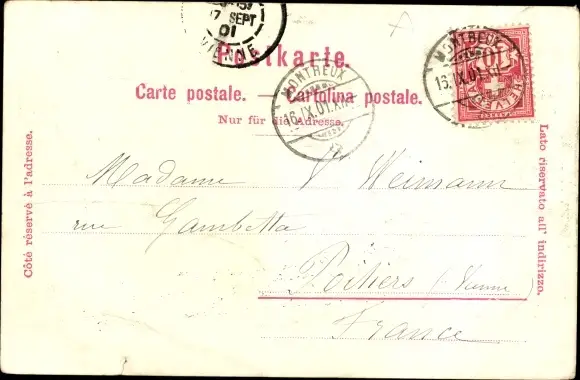 17 SEPT
01
VIENNE
Postkarte.
Carte postale. — Cartolina postale.
Nur für die Adresse.
MONTREUX
16.IX.01.XII
MONTREUX
16.IX.01.XII
10
HELVETIA
Côté réservé à l'adresse.
Lato riservato all' indirizzo.
Madame V Weimann
rue Gambetta
Poitiers (Vienne)
France